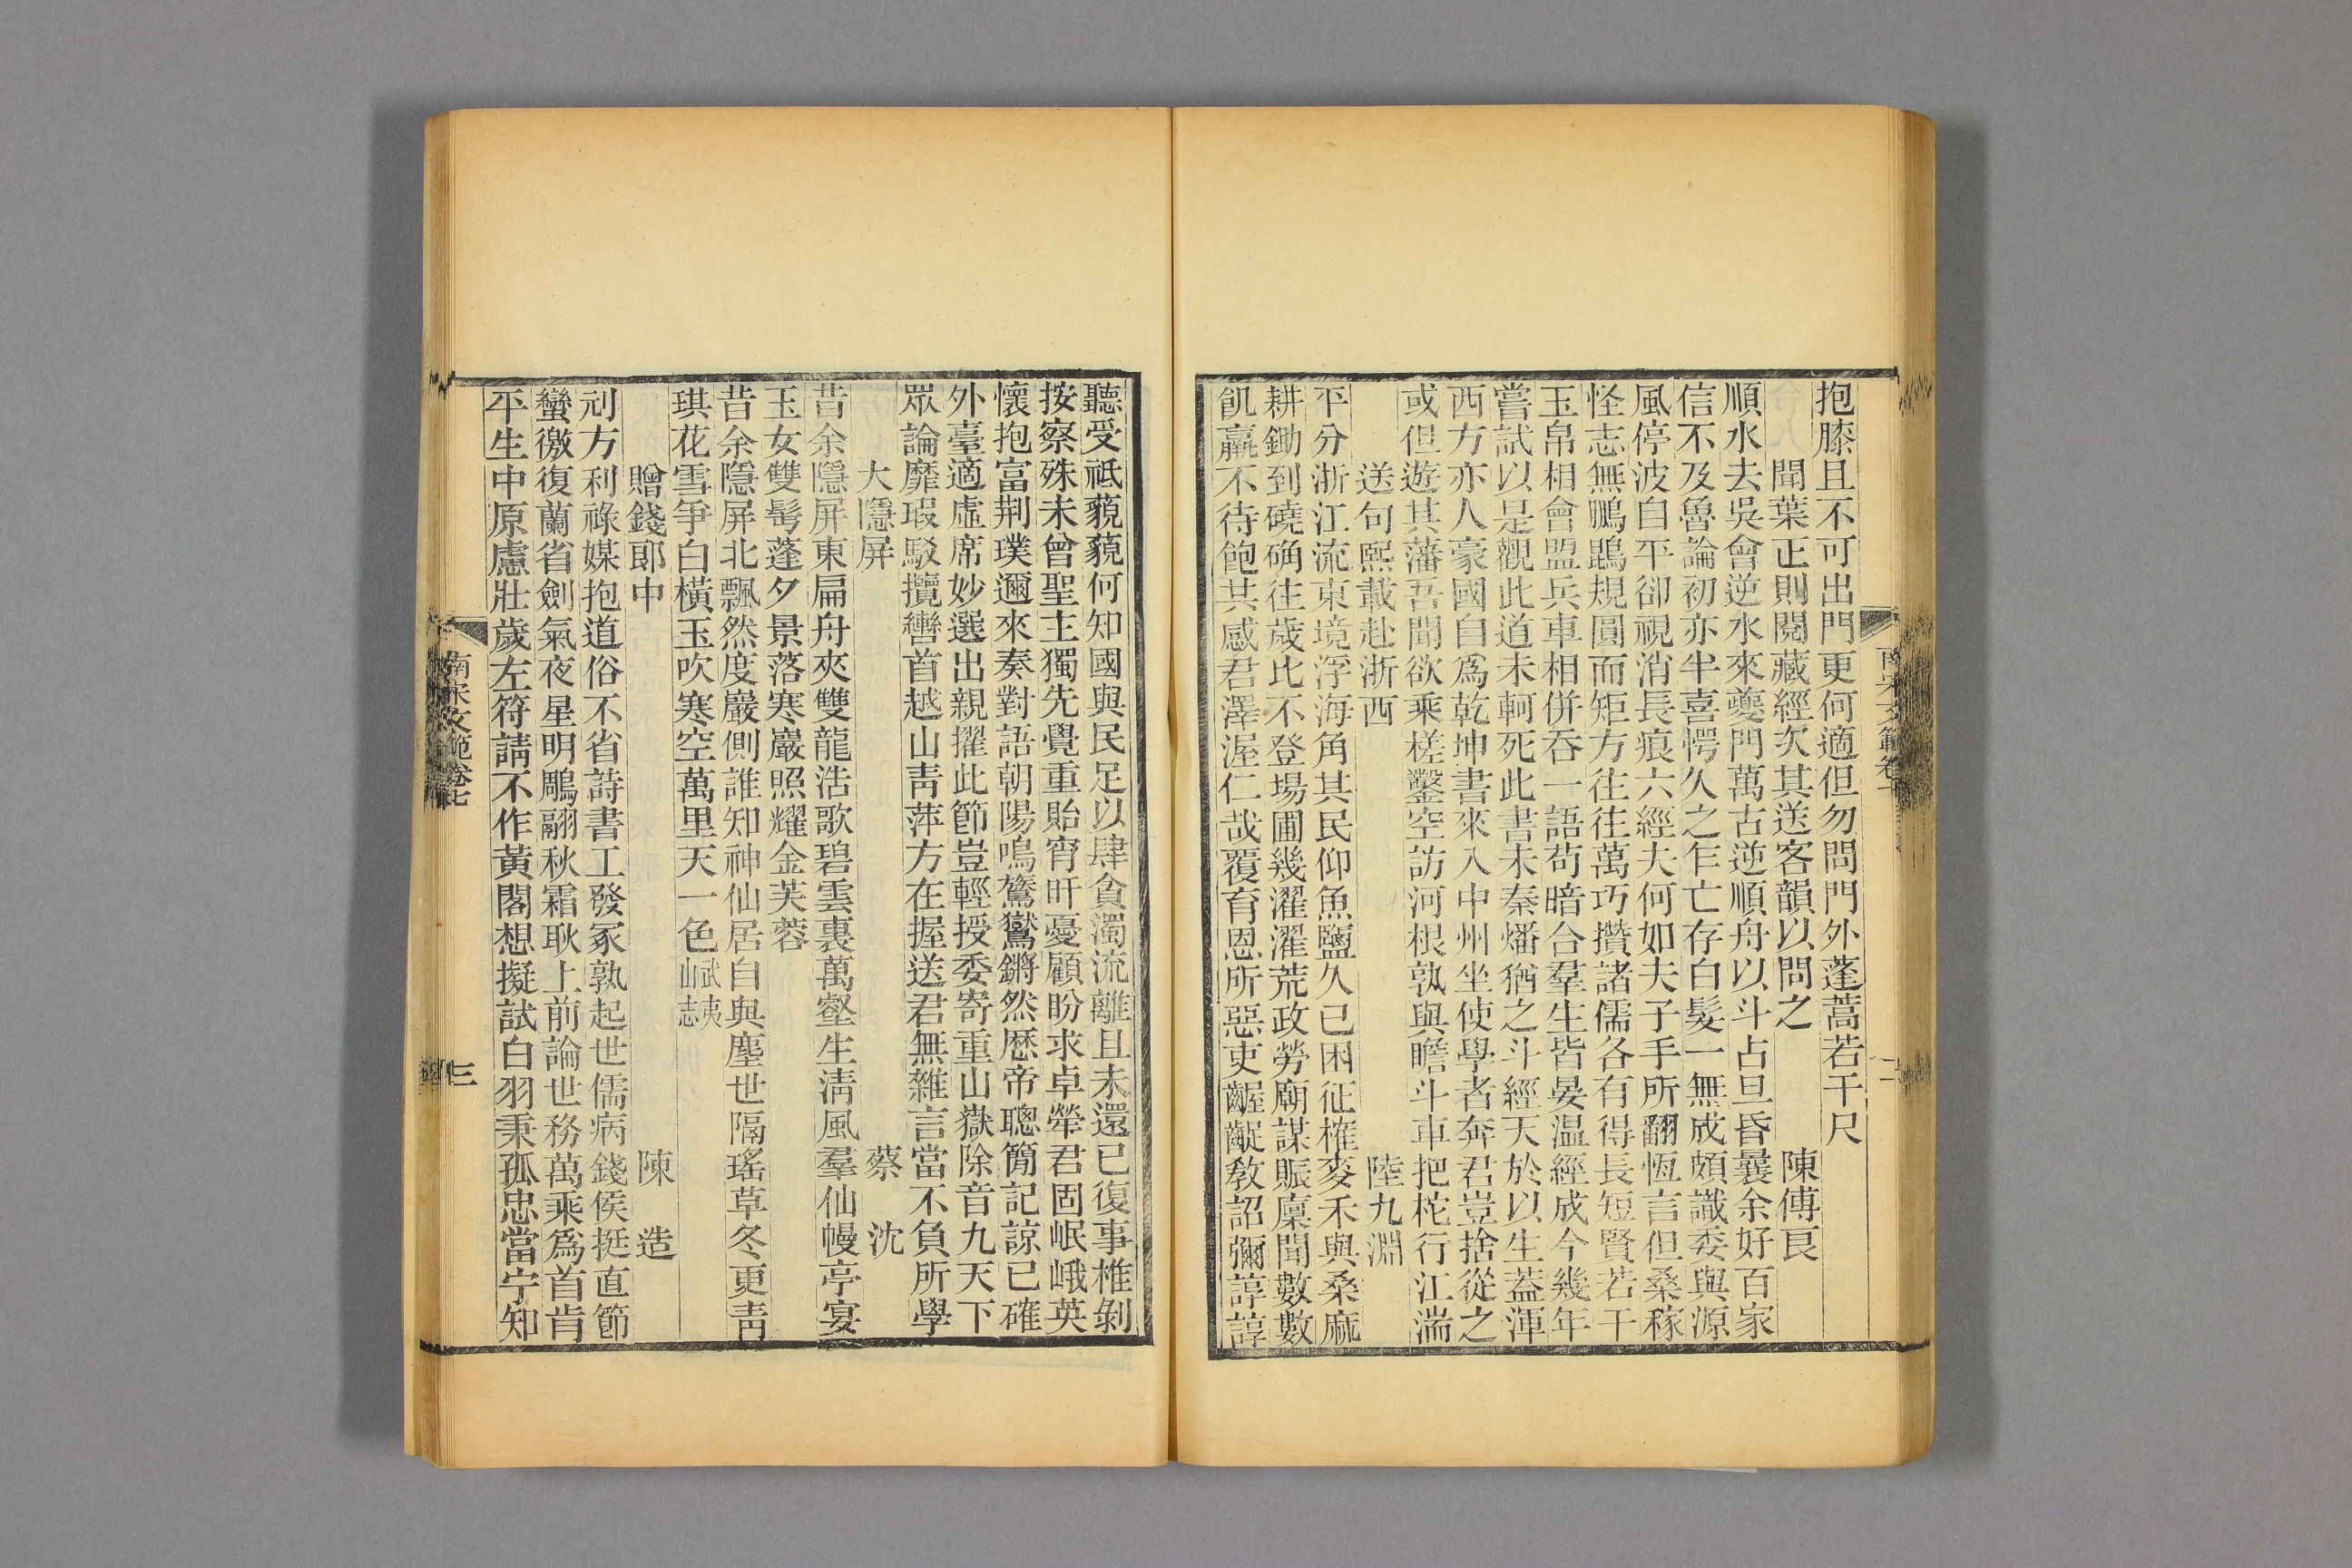 抱膝且不可出門更何適但勿問門外蓬蒿若干尺
聞葉正則閱藏經次其送客韻以問之 陳傅良
順水去吳會逆水來夔門萬古逆順舟以斗占旦昏曩余好百家
信不及魯論初亦半喜愕久之乍亡存白髮一無成頗識委與源
風停波自平卻視消長痕六經夫何如夫子手所翻恆言但桑稼
怪志無鵬鵾規圓而矩方往往萬巧攢諸儒各有得長短賢若干
玉帛相會盟兵車相併吞一語苟暗合羣生皆晏溫經成今幾年
嘗試以是觀此道未軻死此書未秦燔猶之斗經天於以生蓋渾
西方亦人豪國自爲乾坤書來入中州坐使學者奔君豈捨從之
或但遊其藩吾聞欲乘槎鑿空訪河根孰與瞻斗車把柁行江湍
送句熙載赴浙西 陸九淵
平分浙江流東境浮海角其民仰魚鹽久已困征榷麥禾與桑麻
耕鋤到磽确往歲比不登場圃幾濯濯荒政勞廟謀賑廩聞數數
飢羸不待飽共感君澤渥仁哉覆育恩所惡吏齷齪敎詔彌諄諄
聽受祇藐藐何知國與民足以肆貪濁流離且未還已復事椎剝
按察殊未曾聖主獨先覺重貽宵旰憂顧盼求卓犖君固岷峨英
懷抱富荆璞邇來奏對語朝陽鳴鸑鷟鏘然歷帝聰簡記諒已確
外臺適虛席妙選出親擢此節豈輕授委寄重山嶽除音九天下
眾論靡瑕駁攬轡首越山靑萍方在握送君無雜言當不負所學
大隱屏 蔡沈
昔余隱屏東扁舟夾雙龍浩歌碧雲裏萬壑生淸風羣仙幔亭宴
玉女雙髩蓬夕景落寒巖照耀金芙蓉
昔余隱屏北飄然度巖側誰知神仙居自與塵世隔瑤草冬更靑
琪花雪爭白橫玉吹寒空萬里天一色武夷山志
贈錢郎中 陳造
刓方利祿媒抱道俗不省詩書工發冢孰起世儒病錢侯挺直節
蠻徼復蘭省劍氣夜星明鵰翮秋霜耿上前論世務萬乘爲首肯
平生中原慮壯歲左符請不作黃閣想擬試白羽秉孤忠當宁知
南宋文範卷七
三